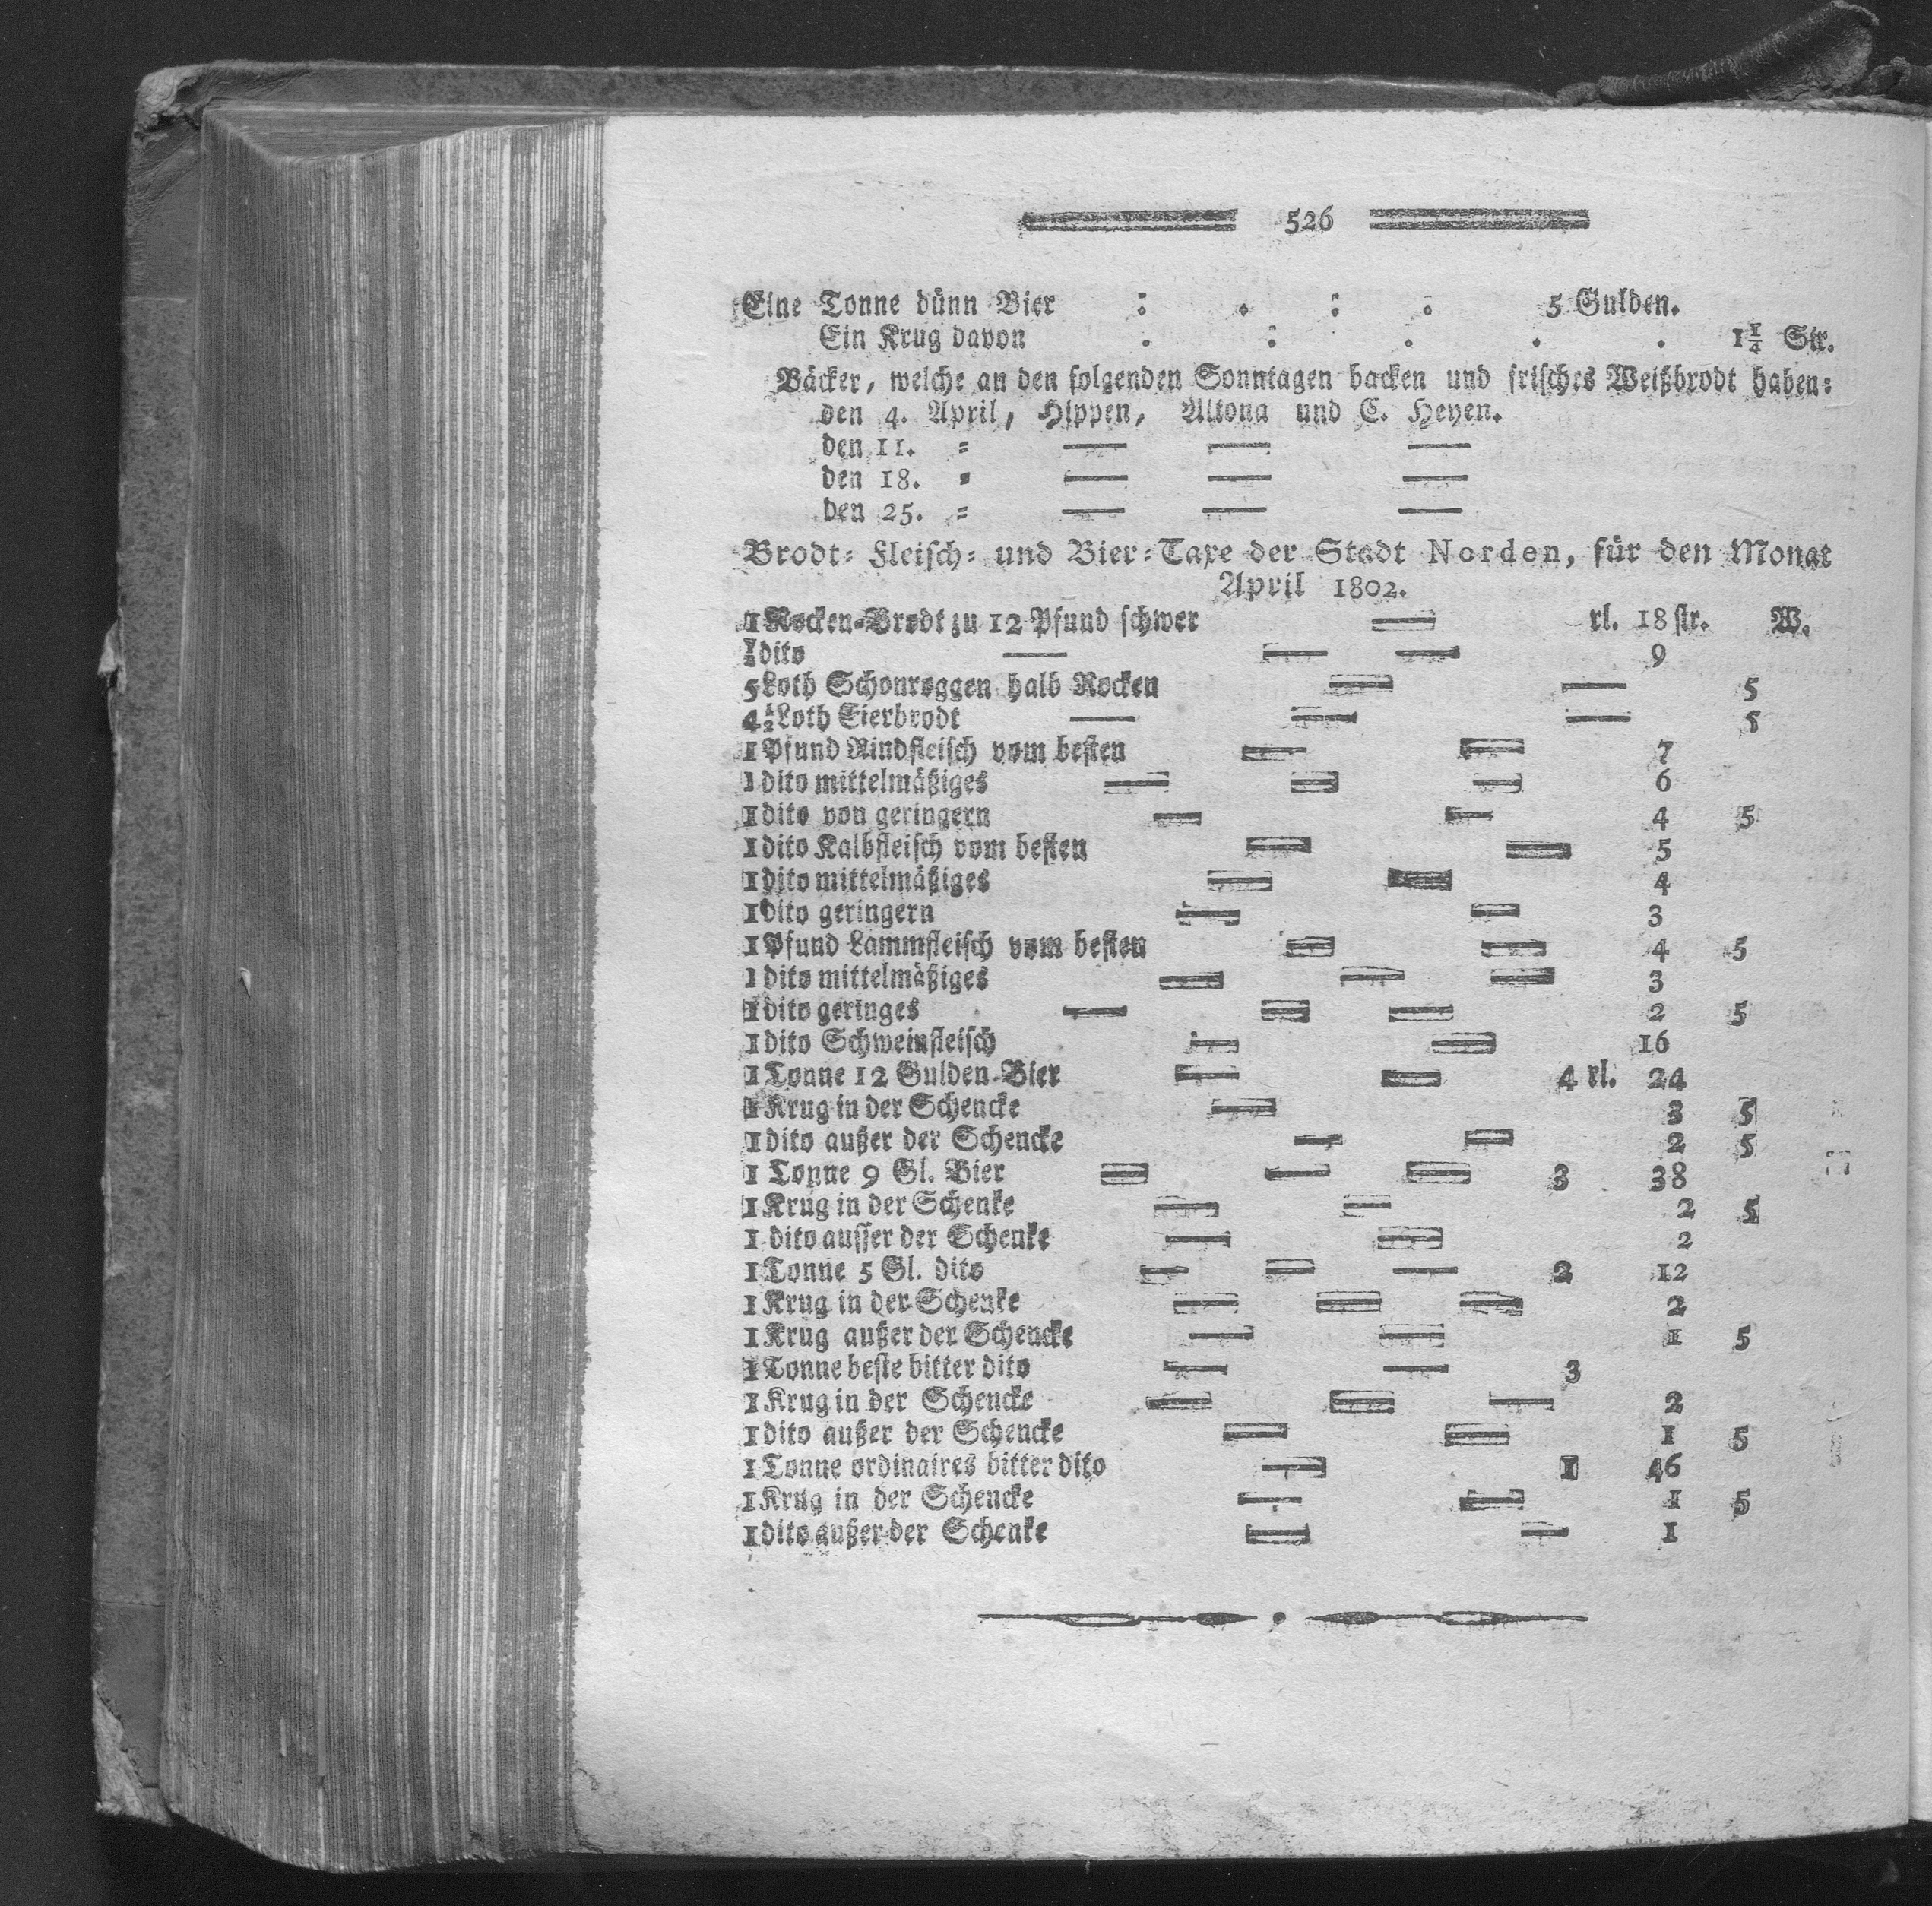 526
Eine Tonne dünn Bier : . : . 5 Gulden.
Ein Krug davon . : . . . 1 1/4 Str.
Bäcker, welche an den folgenden Sonntagen backen und frisches Weißbrodt haben:
den 4. April, Hippen, Altona und C. Heyen.
den 11. = — — —
den 18. = — — —
den 25. = — — —
Brodt= Fleisch= und Bier=Taxe der Stadt Norden, für den Monat
April 1802.
1 Rocken=Brodt zu 12 Pfund schwer — rl. 18 str. W.
1/2 dito — — — 9
5 Loth Schonroggen halb Rocken — — 5
4 1/2 Loth Eierbrodt — — — 5
1 Pfund Rindfleisch vom besten — — 7
1 dito mittelmäßiges — — — 6
1 dito von geringern — — 4 5
1 dito Kalbfleisch vom besten — — 5
1 dito mittelmäßiges — — 4
1 dito geringern — — 3
1 Pfund Lammfleisch vom besten — — 4 5
1 dito mittelmäßiges — — — 3
1 dito geringes — — — 2 5
1 dito Schweinfleisch — — 16
1 Tonne 12 Gulden=Bier — — 4 rl. 24
1 Krug in der Schencke — 3 5
1 dito außer der Schencke — — 2 5
1 Tonne 9 Gl. Bier — — — 3 38
1 Krug in der Schenke — — 2 5
1 dito ausser der Schenke — — 2
1 Tonne 5 Gl. dito — — — 2 12
1 Krug in der Schenke — — — 2
1 Krug außer der Schencke — — 1 5
1 Tonne beste bitter dito — — 3
1 Krug in der Schencke — — — 2
1 dito außer der Schencke — — 1 5
1 Tonne ordinaires bitter dito — 1 46
1 Krug in der Schencke — — 1 5
1 dito außer der Schenke — — 1